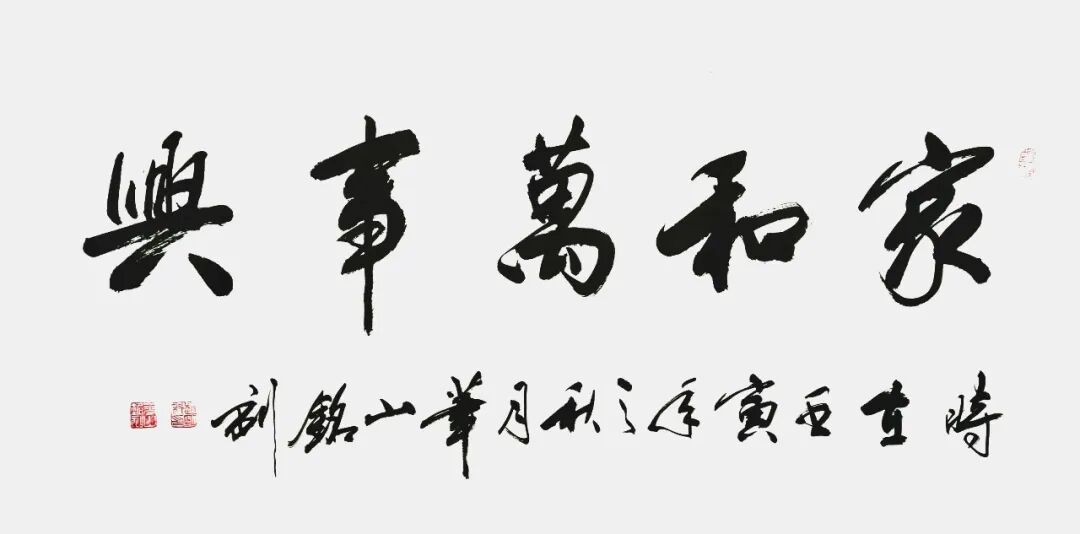 家和萬事興
時在壬寅年之秋月華山銘